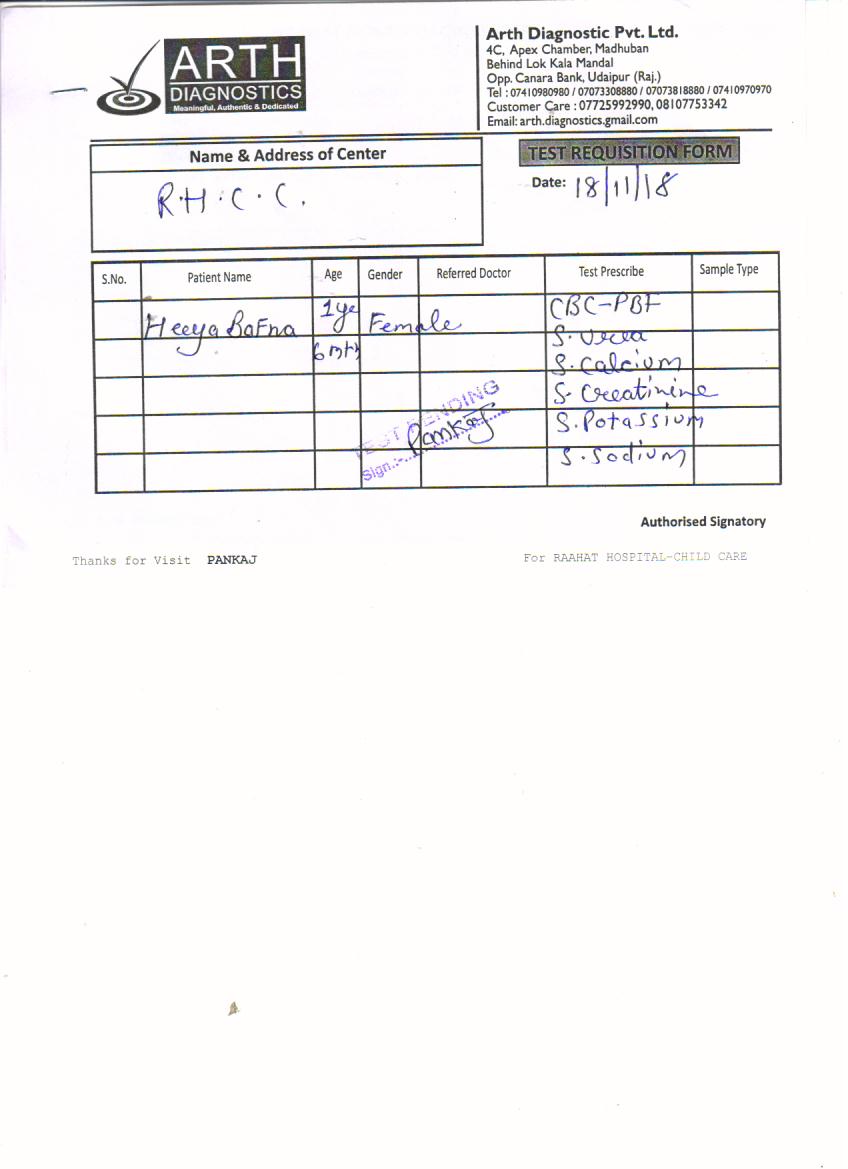 ARTH
DIAGNOSTICS
Meaningful, Authentic & Dedicated
Arth Diagnostic Pvt. Ltd.
4C, Apex Chamber, Madhuban
Behind Lok Kala Mandal
Opp. Canara Bank, Udaipur (Raj.)
Tel : 07410980980 / 07073308880 / 07073818880 / 07410970970
Customer Care : 07725992990, 08107753342
Email: arth.diagnostics.gmail.com
Name & Address of Center
R.H.C.C.
TEST REQUISITION FORM
Date: 18/11/18
S.No. Patient Name Age Gender Referred Doctor Test Prescribe Sample Type
Heeya Bafna 1ye Female CBC-PBF
6 mth S. Urea
S. Calcium
S. Creatinine
S. Potassium
S. Sodium
TEST PENDING
Sign.:- Pankaj
Authorised Signatory
Thanks for Visit PANKAJ
For RAAHAT HOSPITAL-CHILD CARE